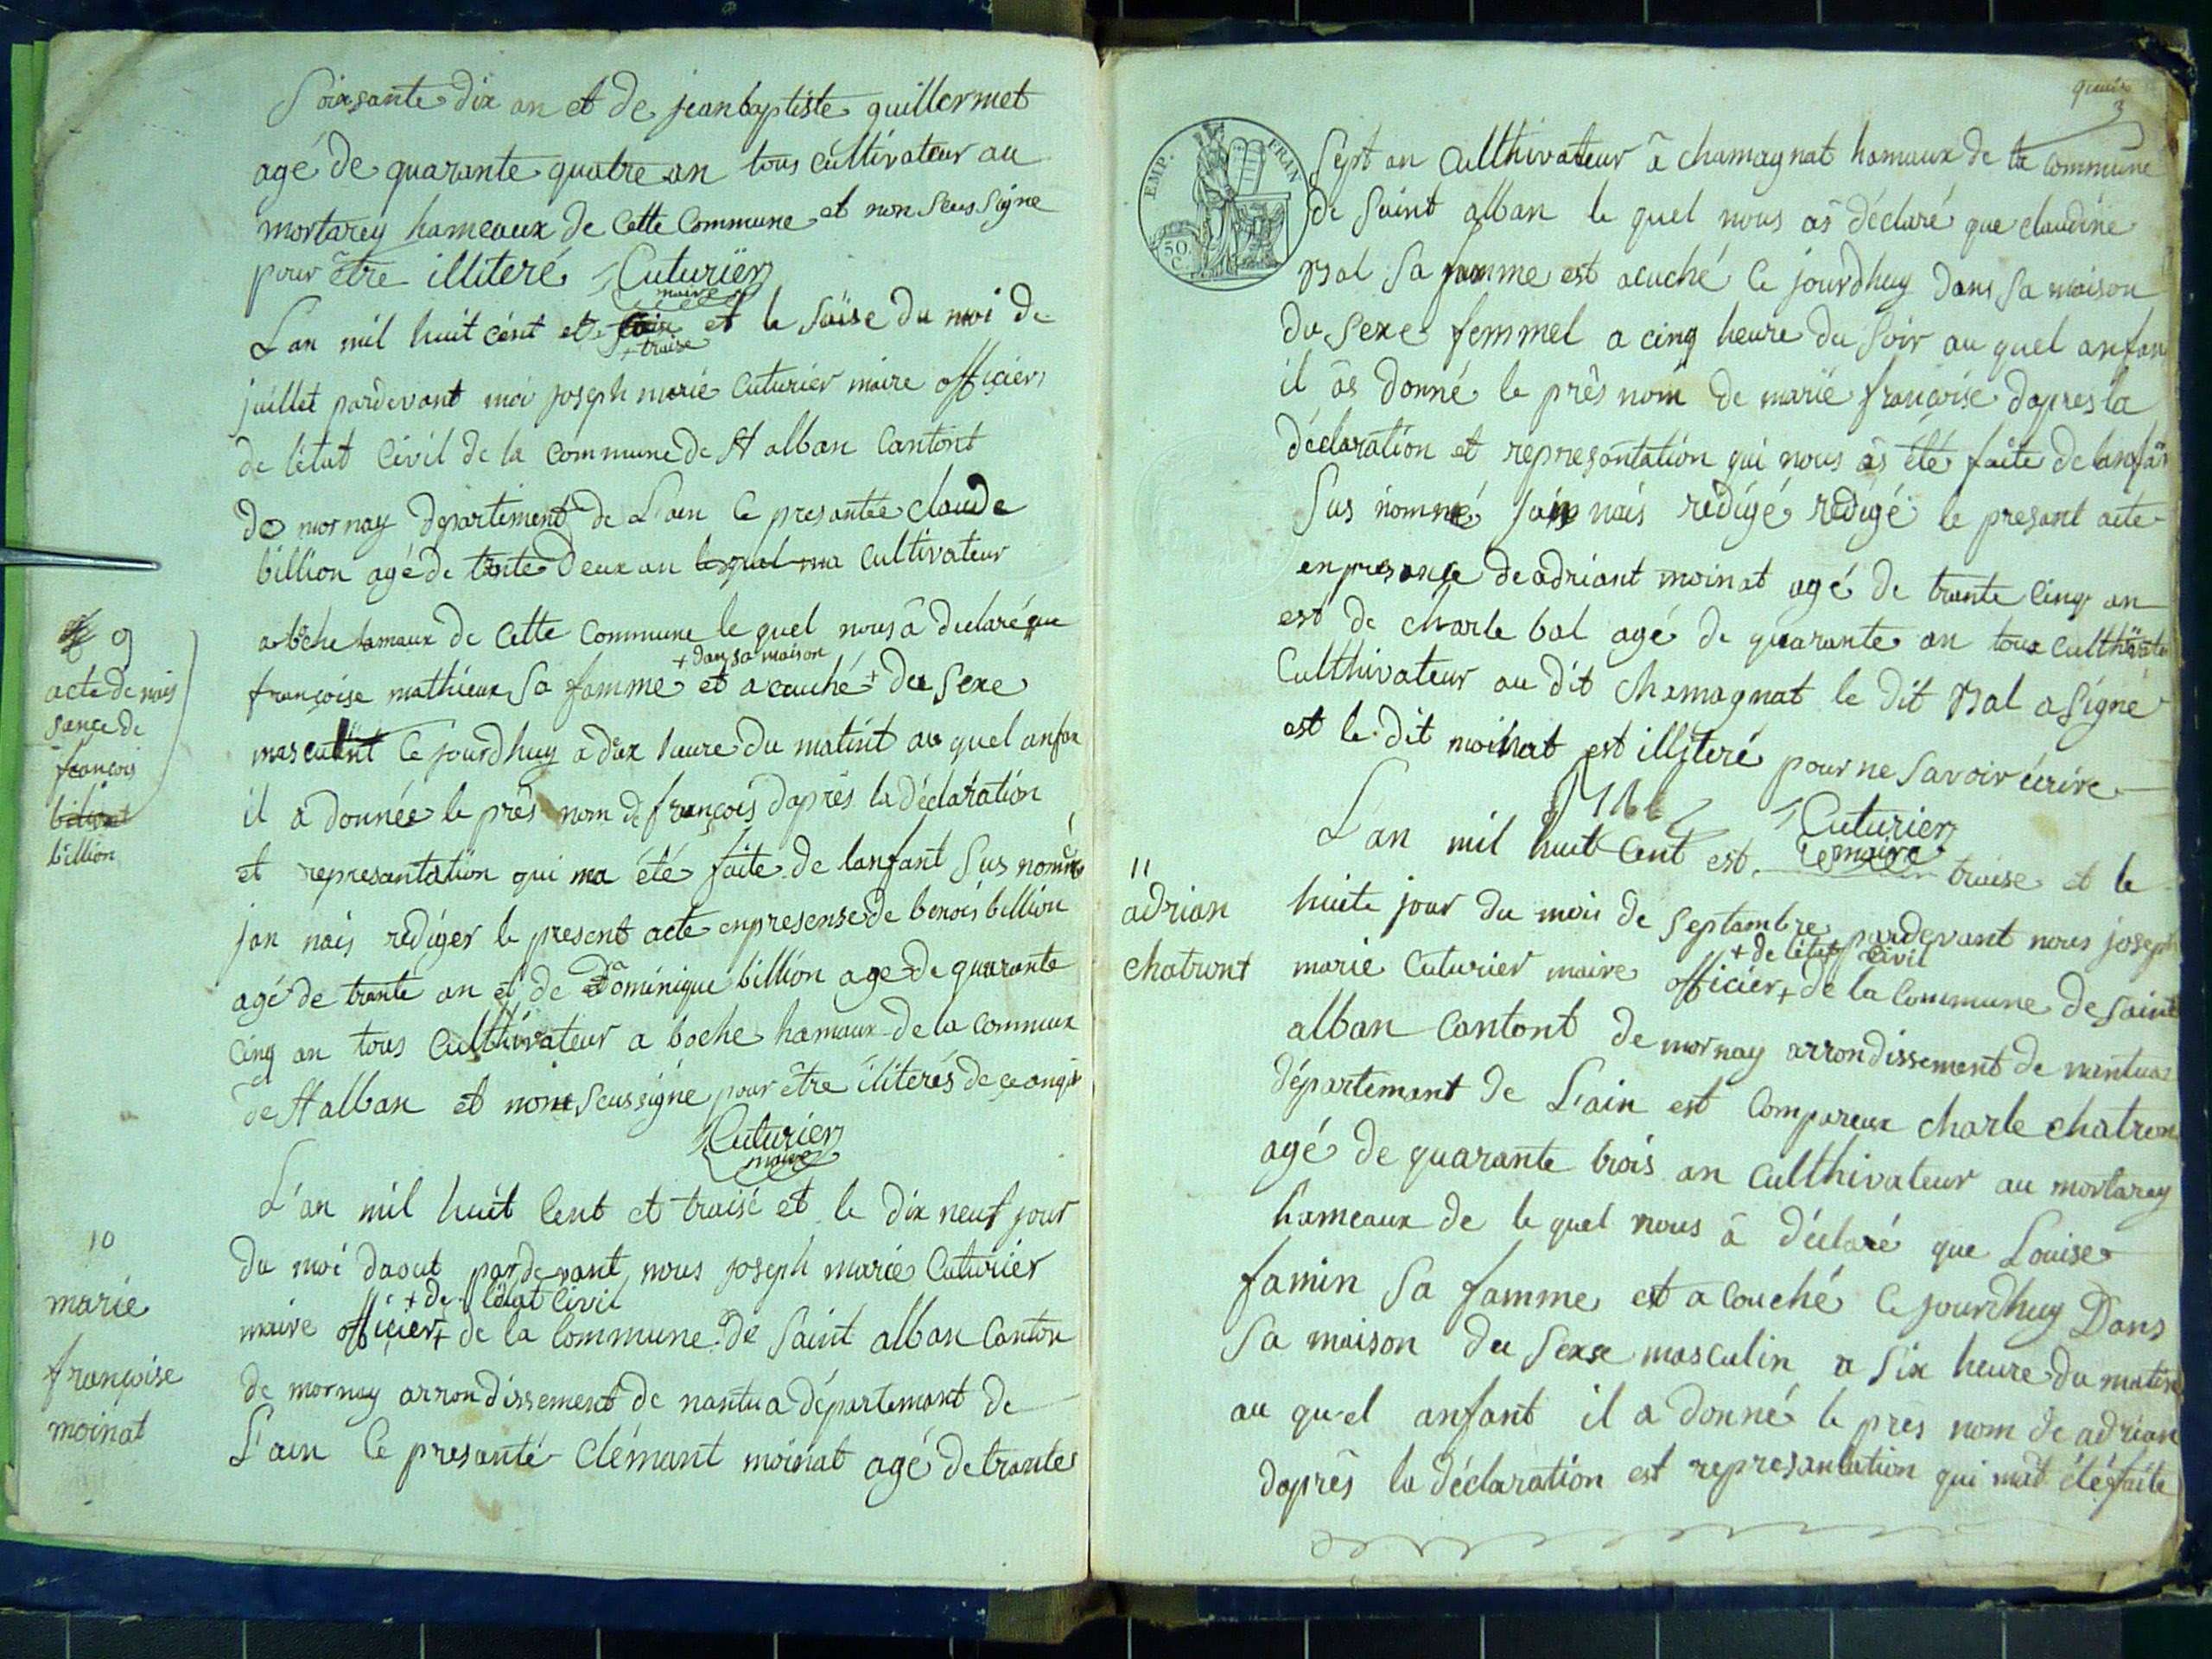 Soixsante dix an et de jean baptiste guillermet
agé de quarante quatre an tous cultivateur au
mortarey hameaux de Cette Commune et non seus signe
pour être illiteré Cuturier
maire
L'an mil huit cent et et le saise du moi de
+ traise
juillet pardevant moi joseph marie Cuturier maire officier
de létat Civil de la Commune de St alban Cantont
de mornay département de L'ain Ce presantée claude
billion agé de trente deux an lequel ma Cultivateur
a bôche hamaux de Cette Commune le quel nous â declaré que
+ dans sa maison
françoise mathieux sa famme et acauché + du sexe
masculint Ce jourdhuy a dix heure du matint au quel anfan
il a donnée le prês nom de françois daprês la déclaration
et represantation qui ma été faite de lanfant sus nomé
jan nais rédiger le present acte enpresense de benois billion
agé de trante an et de Dominique billion age de quarante
Cinq an tous Culthivateur a boche hamaux de la commune
de St alban et nom seussigné pour être ilíterés de ce anquis
Cuturier
maire
9
acte de nais
sance de
francois
biliont
billion
L'an mil huit Cent et traise et le dix neuf jour
du moi daout pardevant nous joseph marie Cuturier
+ de létat Civil
maire officier + de la Commune de Saint alban Canton
de mornay arrondissement de nantua département de
L'ain Ce presanté Clémant moinat agé de trante
10
marie
françoise
moinat
quatre
3
EMP. FRAN
50 C.
Sept an Culthivateur â chamagnat hamaux de la Commune
de Saint alban le quel nous âs déclaré que claudine
Bal sa famme est acuché Ce jourdhuy dans sa maison
du sexe femmel a cinq heure du soir au quel anfan
il âs donné le prês nom de marie françoise dapres la
déclaration et represantation qui nous âs été faite de lanfan
sus nommé jan nais rédigé rédigé le presant acte
enpresance de adriant moinat agé de trante Cinq an
est de charle bal agé de quarante an tous culthivate
Culthivateur au dit Chamagnat le dit Bal a signé
est le dit moinat est illiteré pour ne savoir écrire
Bal Cuturier
maire
L'an mil huit Cent est traise et le
huite jour du mois de septambre pardevant nous joseph
+ de létat Civil
marie Cuturier maire officier + de la Commune de saint
alban Cantont de mornay arrondissement de nantua
département de L'ain est Compareux charle chatron
agé de quarante trois an Culthivateur au mortarey
hameaux de le quel nous â déclaré que Louise
famin sa famme est acouché Ce jourdhuy Dans
Sa maison du sexse masculin a six heure du matin
au quel anfant il a donné le pres nom de adrian
daprês la déclaration est represantation qui mat été faite
11
adrian
chatront